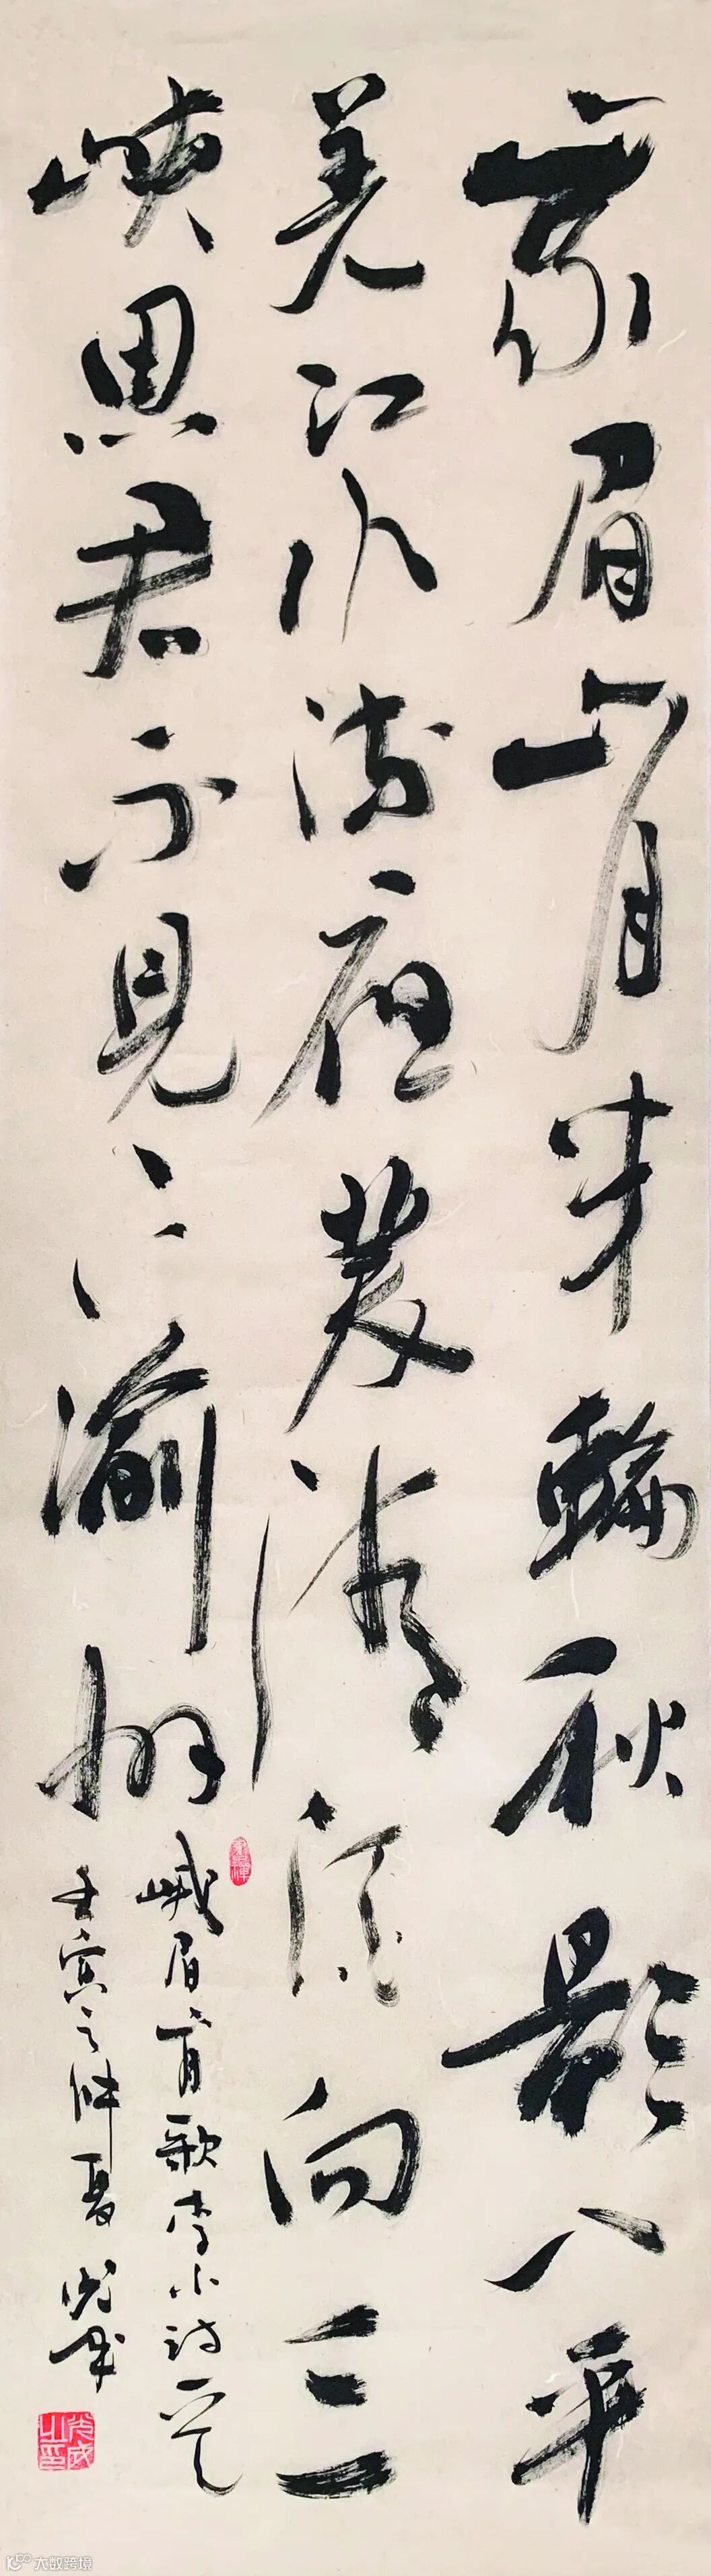 峩眉山月半輪秋影入平
羌江水流夜發清溪向三
峽思君不見下渝州
峨眉山月歌李白詩一首
壬寅之仲夏
大数跨境